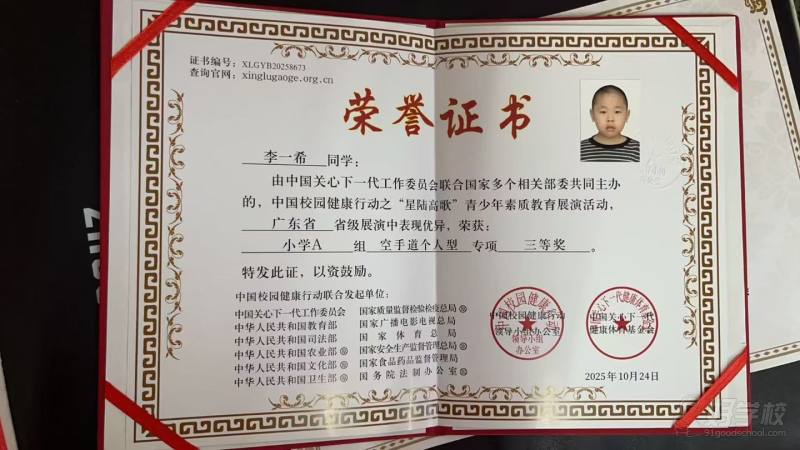 证书编号：XLGYB20258673
查询官网：xinglugaoge.org.cn
荣誉证书
李一希 同学：
由中国关心下一代工作委员会联合国家多个相关部委共同主办
的，中国校园健康行动之“星陆高歌”青少年素质教育展演活动，
广东省 省级展演中表现优异，荣获：
小学A 组 空手道个人型 专项 三等奖 。
特发此证，以资鼓励。
中国校园健康行动联合发起单位：
中国关心下一代工作委员会 国家质量监督检验检疫总局
中华人民共和国教育部 国家广播电影电视总局
中华人民共和国司法部 国家体育总局
中华人民共和国农业部 国家安全生产监督管理总局
中华人民共和国文化部 国家食品药品监督管理局
中华人民共和国卫生部 国务院法制办公室
中国校园健康行动 中国关心下一代
领导小组办公室 健康体育基金会
领导小组
办公室
2025年10月24日
学校
91goodschool.com